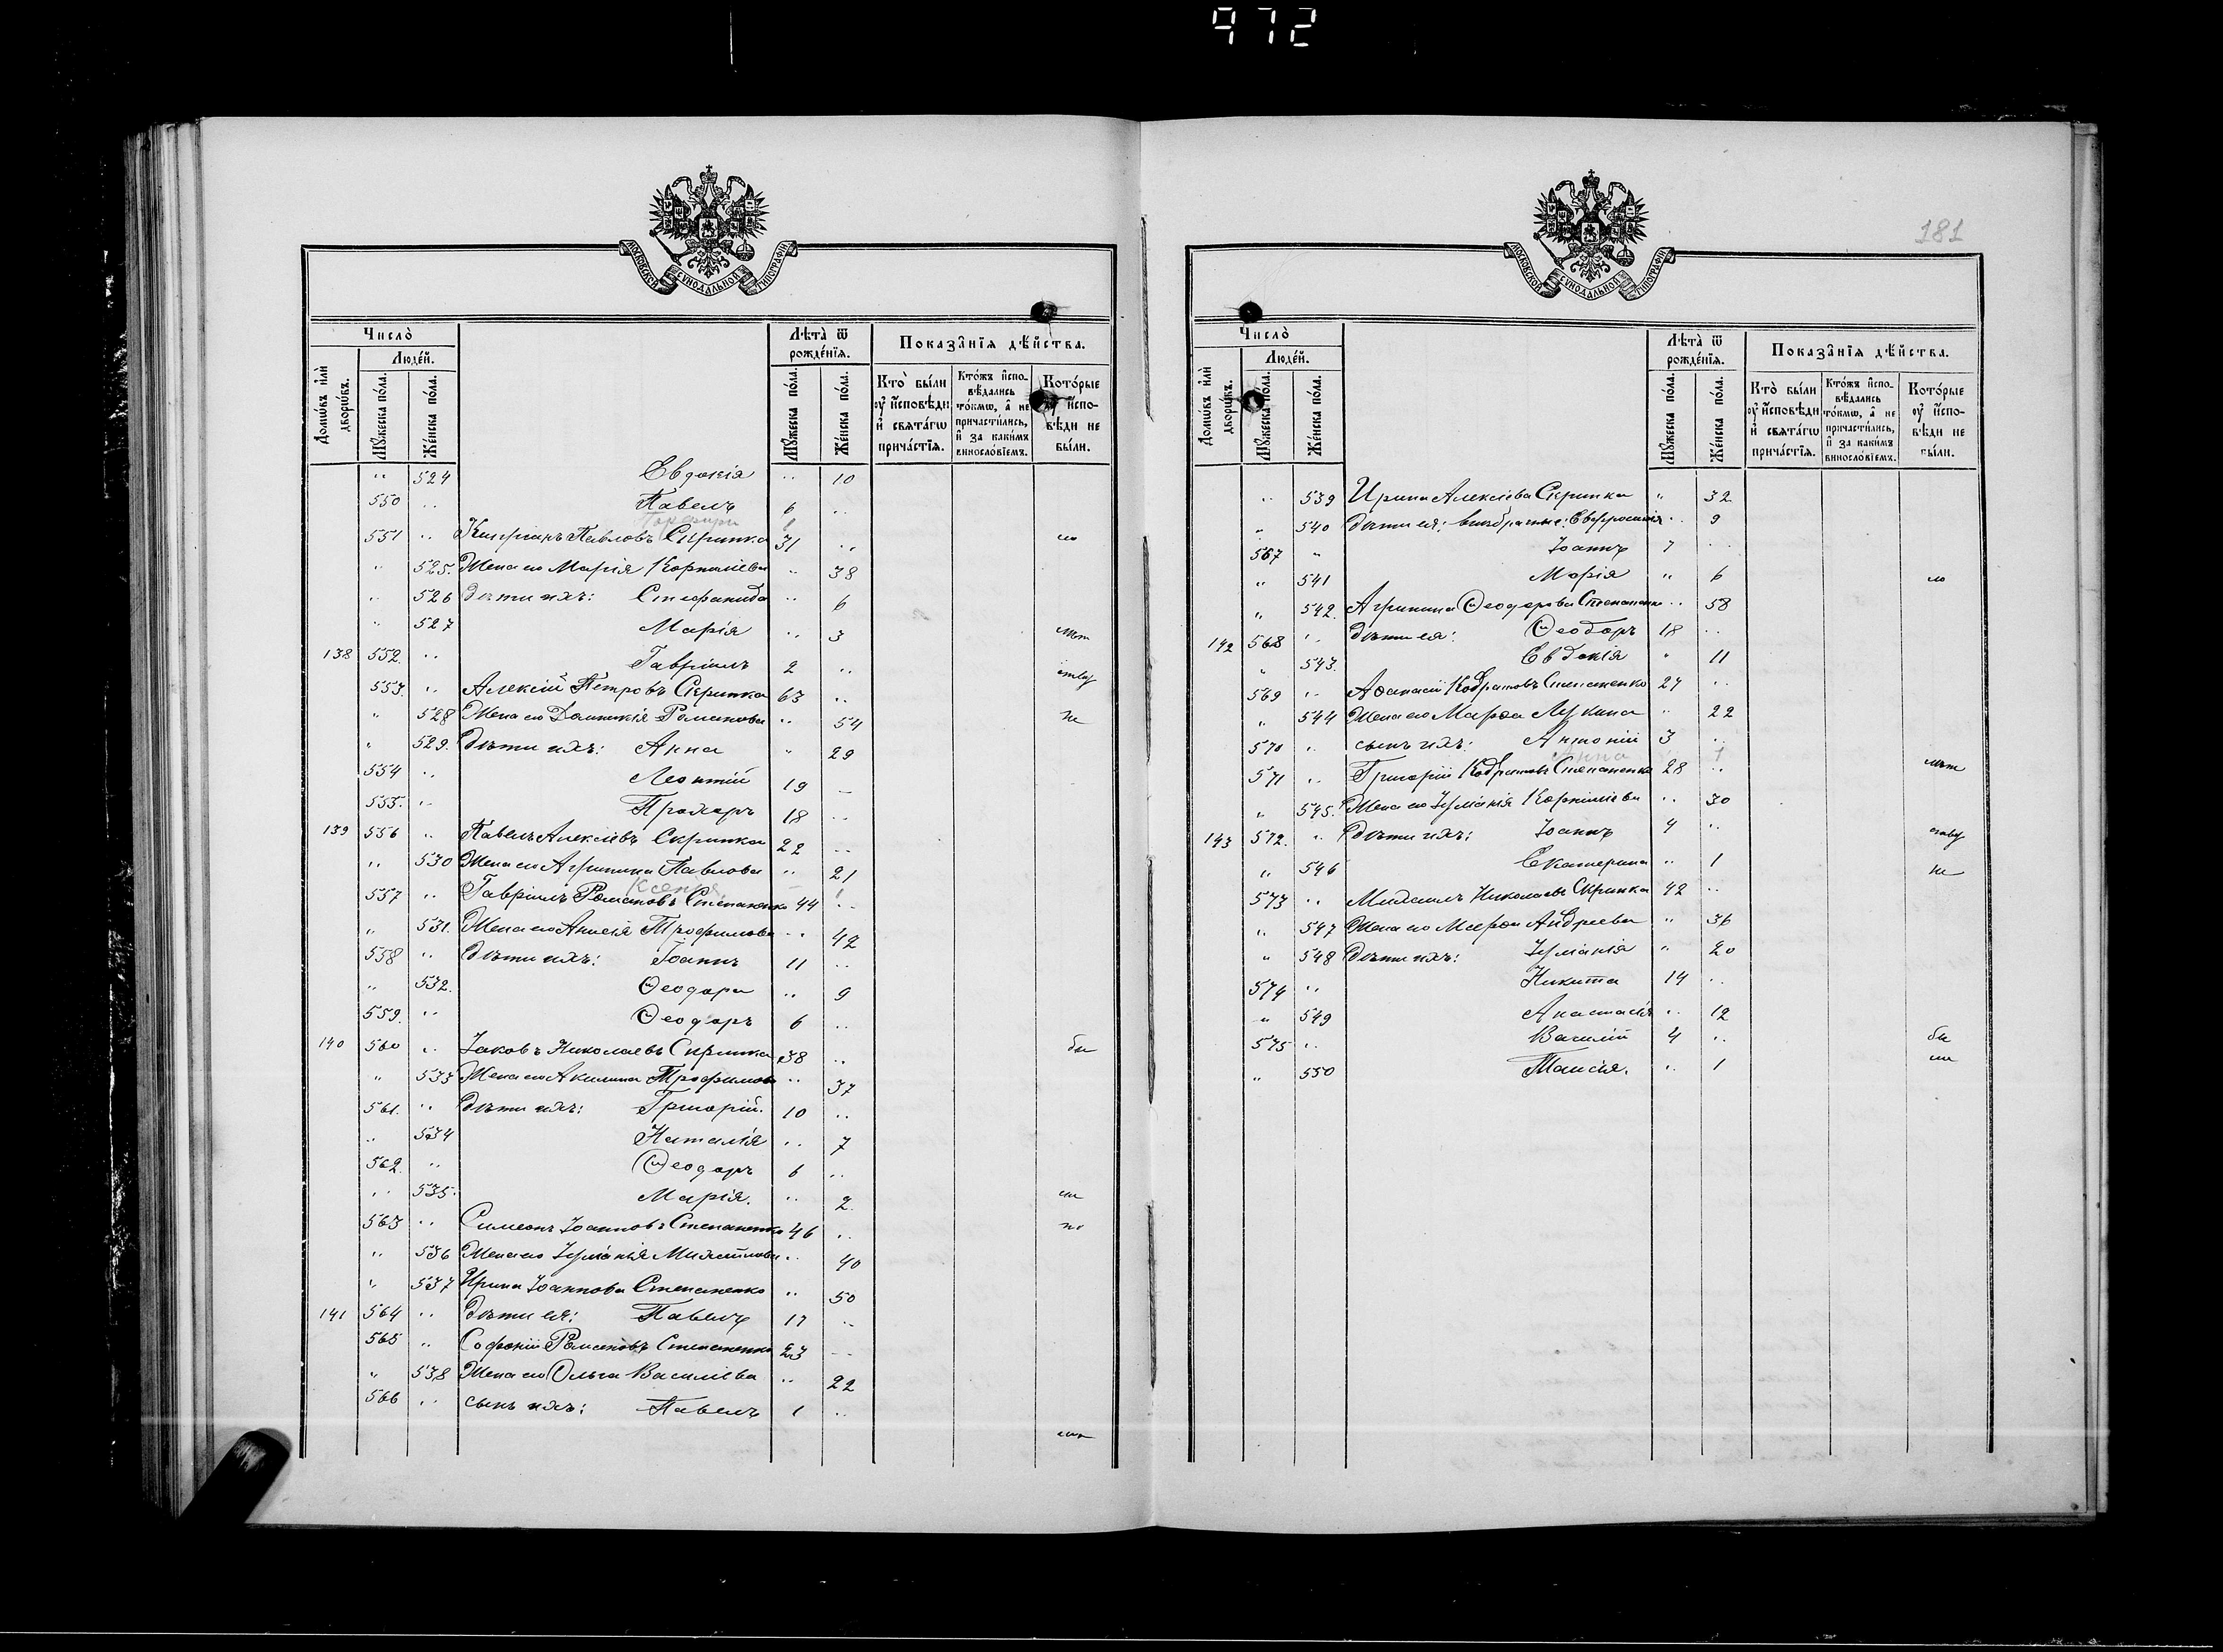 972
МОСКОВСКОЙ СѴНОДАЛЬНОЙ ТИПОГРАФІИ
Число̀
Домѡ́въ и҆лѝ дворѡ́въ.
Люде́й.
Мꙋ́жеска по́ла.
Же́нска по́ла.
Лѣта̀ ѿ рожде́нїѧ.
Мꙋ́жеска по́ла.
Же́нска по́ла.
Показа̑нїѧ дѣ́йства.
Кто̀ бы́ли ᲂу҆ и҆́сповѣди и҆ свѧта́гѡ прича́стїѧ.
Кто́жъ и҆сповѣ́дались то́кмѡ, а҆ не причасти́лись, и҆ за каки́мъ виносло́вїемъ.
Кото́рые ᲂу҆ и҆́сповѣди не бы́ли.
„ 524 Евдокія „ 10
550 „ Павелъ 6 „
Порфири
551 „ Кипріанъ Павловъ Скрипка 31 „
„ 525. Жена его Марія Корниліева „ 38
„ 526 Дѣти ихъ: Стефанида „ 6
„ 527 Марія „ 3
138 552. „ Гавріилъ 2 „
553. „ Алексій Петровъ Скрипка 63 „
„ 528 Жена его Домникія Романова „ 54 не
„ 529. Дѣти ихъ: Анна „ 29
554 „ Леонтій 19 „
555. „ Прохоръ 18 „
139 556 „ Павелъ Алексіевъ Скрипка 22 „
„ 530 Жена его Агрипина Павлова „ 21
Ксенія 1
557 „ Гавріилъ Романовъ Степаненко 44 „
„ 531. Жена его Анисія Трофимова „ 42
558 „ Дѣти ихъ: Іоаннъ 11 „
„ 532. Ѳеодора „ 9
559. „ Ѳеодоръ 6 „
140 560 „ Іаковъ Николаевъ Скрипка 38 „ бы
„ 533 Жена его Акилина Трофимова „ 37
561. „ Дѣти ихъ: Григорій. 10 „
„ 534 Наталія „ 7
562. „ Ѳеодоръ 6 „
„ 535. Марія. „ 2
563 „ Симеонъ Іоанновъ Степаненко 46 „
„ 536 Жена его Іуліанія Михаилова „ 40
„ 537 Ирина Іоаннова Степаненко „ 50
141 564 „ Дѣти ея: Павелъ 17 „
565 „ Софоній Романовъ Степаненко 23 „
„ 538 Жена его Ольга Василіева „ 22
566 „ сынъ ихъ: Павелъ 1 „
181
МОСКОВСКОЙ СѴНОДАЛЬНОЙ ТИПОГРАФІИ
Число̀
Домѡ́въ и҆лѝ дворѡ́въ.
Люде́й.
Мꙋ́жеска по́ла.
Же́нска по́ла.
Лѣта̀ ѿ рожде́нїѧ.
Мꙋ́жеска по́ла.
Же́нска по́ла.
Показа̑нїѧ дѣ́йства.
Кто̀ бы́ли ᲂу҆ и҆́сповѣди и҆ свѧта́гѡ прича́стїѧ.
Кто́жъ и҆сповѣ́дались то́кмѡ, а҆ не причасти́лись, и҆ за каки́мъ виносло́вїемъ.
Кото́рые ᲂу҆ и҆́сповѣди не бы́ли.
„ 539 Ирина Алексіева Скрипка „ 32
„ 540 Дѣти ея: внѣбрачные: Евфросинія „ 9
567 „ Іоаннъ 7 „
„ 541 Марія „ 6
„ 542. Агрипина Ѳеодорова Степаненко „ 58
142 568 „ Дѣти ея: Ѳеодоръ 18 „
„ 543. Евдокія „ 11
569 „ Аѳанасій Кодратовъ Степаненко 27 „
„ 544 Жена его Марѳа Лукина „ 22
570 „ сынъ ихъ: Антоній 3 „
Анна 1
571 „ Григорій Кодратовъ Степаненко 28 „
„ 545. Жена его Іуліанія Корниліева „ 30
143 572. „ Дѣти ихъ: Іоаннъ 4 „
„ 546 Екатерина „ 1 не
573 „ Михаилъ Николаевъ Скрипка 42 „
„ 547 Жена его Марѳа Андреева „ 36
„ 548 Дѣти ихъ: Іуліанія „ 20
574 „ Никита 14 „
„ 549 Анастасія „ 12
575 „ Василій 4 „ бы
„ 550 Таисія. „ 1